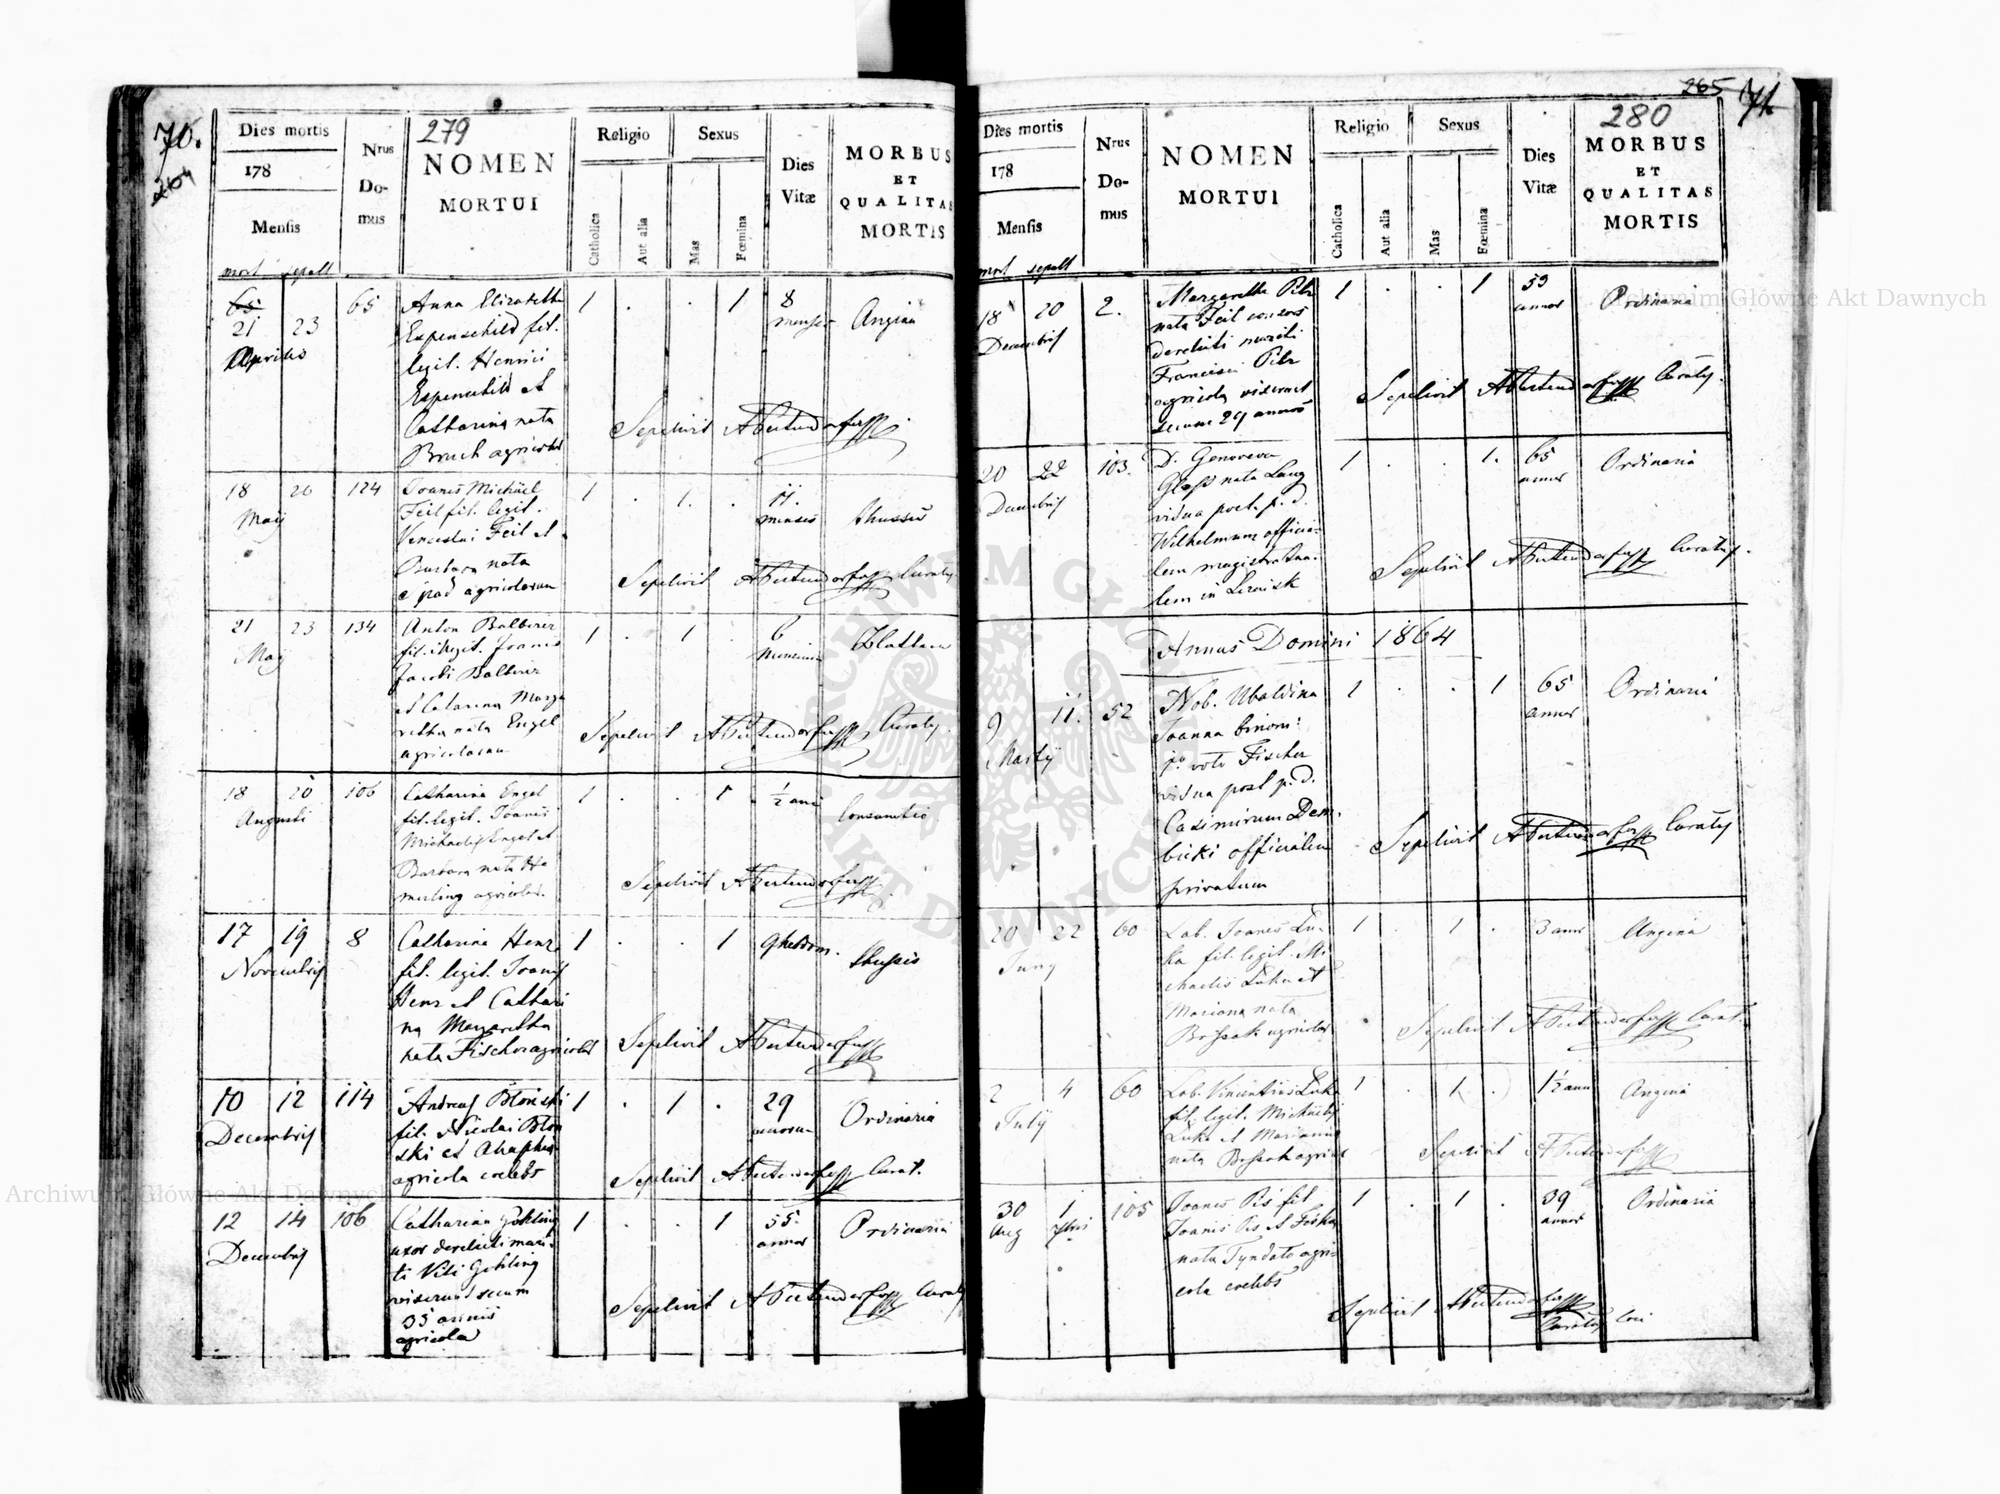 70.
264
279
Dies mortis
178
Mensis
mort sepult
Nrus
Do-
mus
NOMEN
MORTUI
Religio
Catholica
Aut alia
Sexus
Mas
Fœmina
Dies
Vitæ
MORBUS
ET
QUALITAS
MORTIS
65
21 23
Aprilis
65
Anna Elizabetha
Espenschild fil.
legit. Henrici
Espenschild et
Catharina nata
Bruch agricolar
1 . . 1
8
menses
Angina
Sepelivit
18 26
Maji
124
Joanes Michael
Feil fil. legit.
Venceslai Feil et
Barbara nata
agricolarum
1 . 1 .
11
menses
Sepelivit Curatus
21 23
Maji
134
Anton Balberer
fil. legit. Joanis
Jacobi Balberer
et Catarina Marga
retha nata Engel
agricolarum
1 . 1 .
6
Sepelivit Curatus
18 20
Augusti
106
Catharina Engel
fil. legit. Joanis
Michaelis Engel et
Barbara nata Ha
merling agricolar.
1 . . 1
½ ani
Consumtio
Sepelivit
17 19
Novembris
8
Catharina Henz
fil. legit. Joanis
Henz et Cathari
na Margaretha
nata Fischer agricolar
1 . . 1
9 hebdom.
Sepelivit
10 12
Decembris
114
Andreas Błoński
fil. Nicolai Błoń
ski et
agricola coelebs
1 . 1 .
29
annorum
Ordinaria
Sepelivit Curat.
12 14
Decembris
106
Catharina Gohling
uxor derelicti mari-
ti Viti Gohling
vixerunt secum
35 annis
agricola
1 . . 1
55
annos
Ordinaria
Sepelivit Curatus
265
71
280
Dies mortis
178
Mensis
mort sepult
Nrus
Do-
mus
NOMEN
MORTUI
Religio
Catholica
Aut alia
Sexus
Mas
Fœmina
Dies
Vitæ
MORBUS
ET
QUALITAS
MORTIS
18 20
Decembris
2.
Margaretha Pelz
nata Feil consors
derelicti mariti
Francisci Pelz
agricola vixerunt
secum 29 annos
1 . . 1
53
annos
Ordinaria
Sepelivit Curatus.
20 22
Decembris
103.
D. Genoveva
Glass nata Lang
vidua post p. d.
Wilhelmum officia-
lem magistratua-
lem in Leżaisk
1 . . 1.
65
annos
Ordinaria
Sepelivit Curatus.
Annus Domini 1864
9 11.
Martij
52
Nob. Ubaldina
Joanna binom:
1o voto Fischer
vidua post p. d.
Casimirum Dem-
bicki officialem
privatum
1 . . 1
65
annos
Ordinaria
Sepelivit Curatus
20 22
Juny
60
Lab. Joanes Lu-
ka fil. legit. Mi
chaelis Luka et
Mariana nata
agricolar
1 . 1 .
3 annos
Angina
Sepelivit Curat.
2 4
July
60
Lab. Vincentius Luka
fil. legit. Michaelis
Luka et Marianna
nata
1 . 1 .
1½ anni
Angina
Sepelivit
30 1
Aug 7bris
105
Joanes Pis fil.
Joanis Pis et
nata agri-
cola coelebs
1 . 1 .
39
annos
Ordinaria
Sepelivit
Curatus loci
Archiwum Główne Akt Dawnych
Archiwum Główne Akt Dawnych
ARCHIWUM GŁÓWNE AKT DAWNYCH